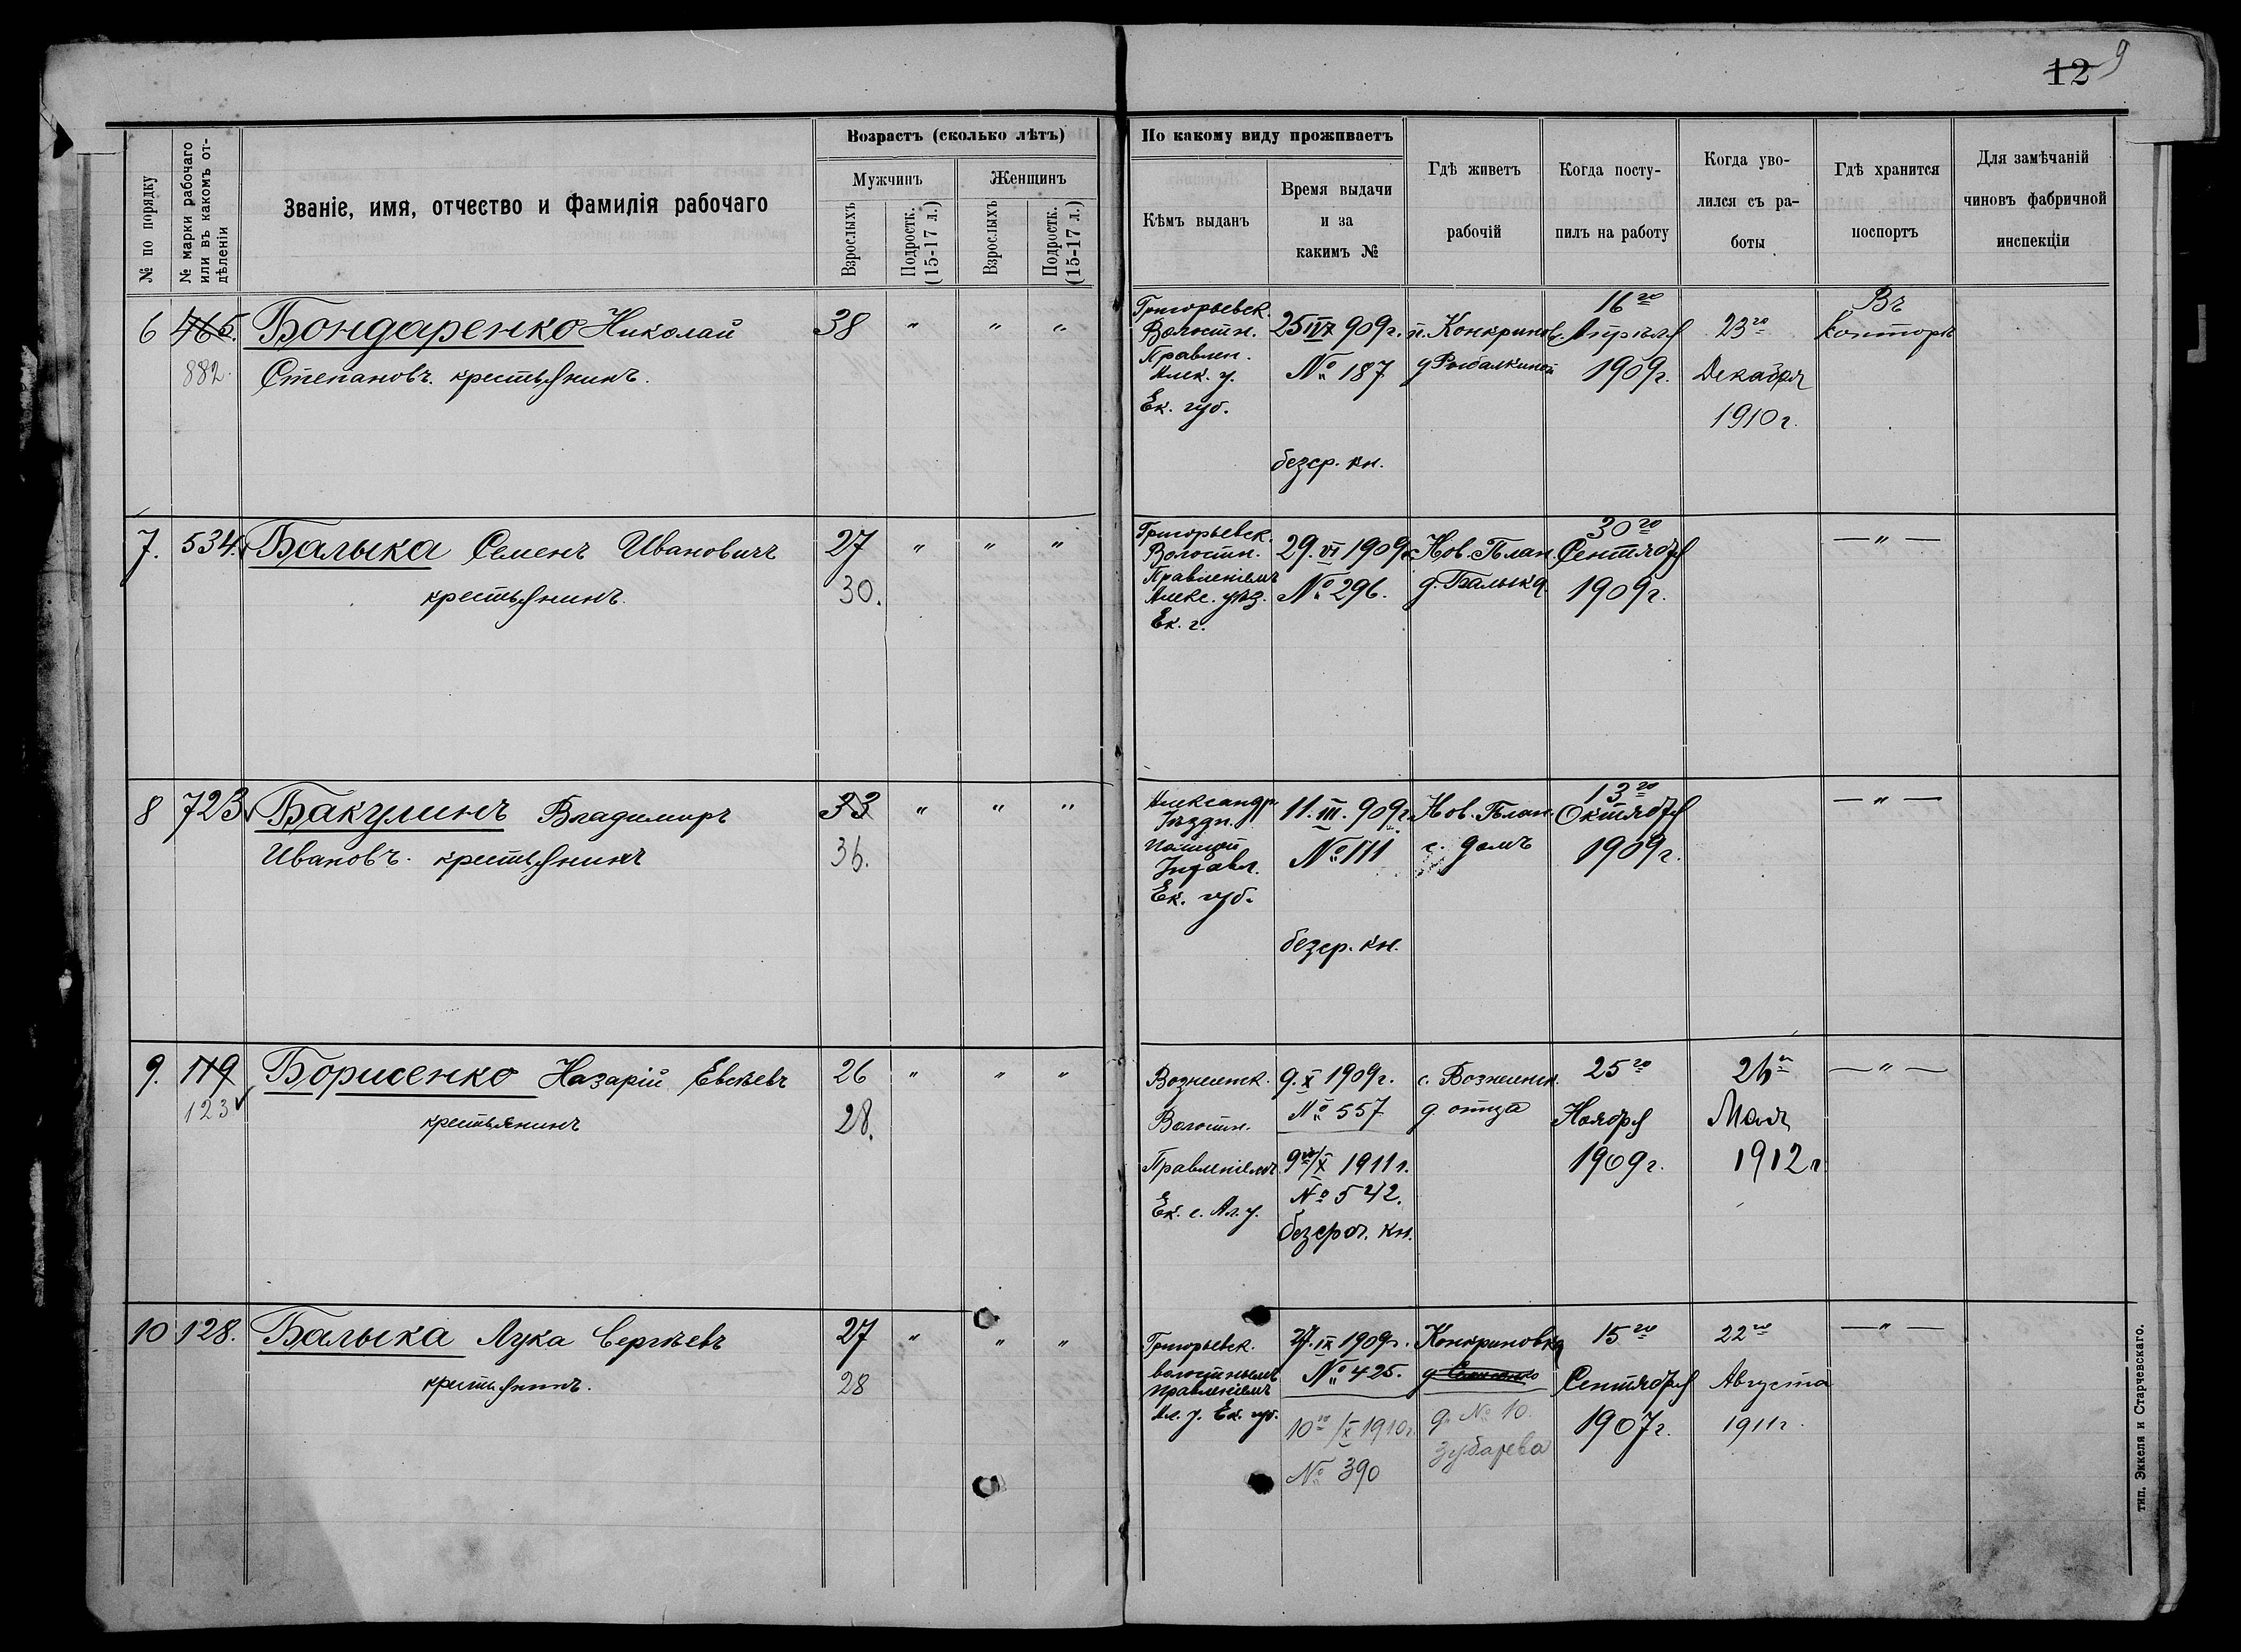 12 9
№ по порядку
№ марки рабочаго
или въ какомъ от-
дѣленіи
Званіе, имя, отчество и фамилія рабочаго
Возрастъ (сколько лѣтъ)
Мужчинъ
Женщинъ
Взрослыхъ
Подростк.
(15-17 л.)
Взрослыхъ
Подростк.
(15-17 л.)
По какому виду проживаетъ
Кѣмъ выданъ
Время выдачи
и за
какимъ №
Гдѣ живетъ
рабочій
Когда посту-
пилъ на работу
Когда уво-
лился съ ра-
боты
Гдѣ хранится
поспортъ
Для замѣчаній
чиновъ фабричной
инспекціи
6 465. Бондаренко Николай 38 " " "
882. Степановъ. крестьянинъ.
Григорьевск.
Волостн.
Правлен.
Алек. у.
Ек. губ.
25 909г.
№ 187
безср. кн.
п. Конкринов.
д Рыбалкиной
16го
Апрѣля
1909г.
23го
Декабря
1910г.
Въ
конторѣ
7. 534. Балыка Семенъ Ивановичъ 27 " " "
крестьянинъ. 30.
Григорьевск.
Волостн.
Правленіемъ
Алекс. уѣз.
Ек. г.
29. VI 1909г.
№ 296.
Нов. План.
д. Балыка.
30го
Сентября
1909г.
— " —
8 723 Бакулинъ Владимиръ 33 " " "
Ивановъ. крестьянинъ 36.
Александр.
Уѣздн.
Полицей
Управл.
Ек. губ.
11. III. 909г.
№ 111
безср. кн.
Нов. План.
с. домъ
13го
Октября
1909г.
— " —
9. 119 Борисенко Назарій Евсѣевъ 26 " " "
123 крестьянинъ 28.
Вознесенск.
Волостн.
Правленіемъ
Ек. г. Ал. у.
9. X 1909г.
№ 557
9го/X 1911г.
№ 542.
безсроч. кн.
с. Вознесенск.
д. отца
25го
Ноября
1909г.
26го
Мая
1912г
— " —
10 128. Балыка Лука Сергѣевъ 27 " " "
крестьянинъ. 28
Григорьевск.
волостнымъ
правленіемъ
Ал. у. Ек. губ.
27. IX 1909г.
№ 425.
10го/X 1910г.
№ 390
Конкриновка
д. № 10.
Зубарева
15го
Сентября
1907г.
22го
Августа
1911г.
— " —
тип. Эккеля и Старчевскаго.